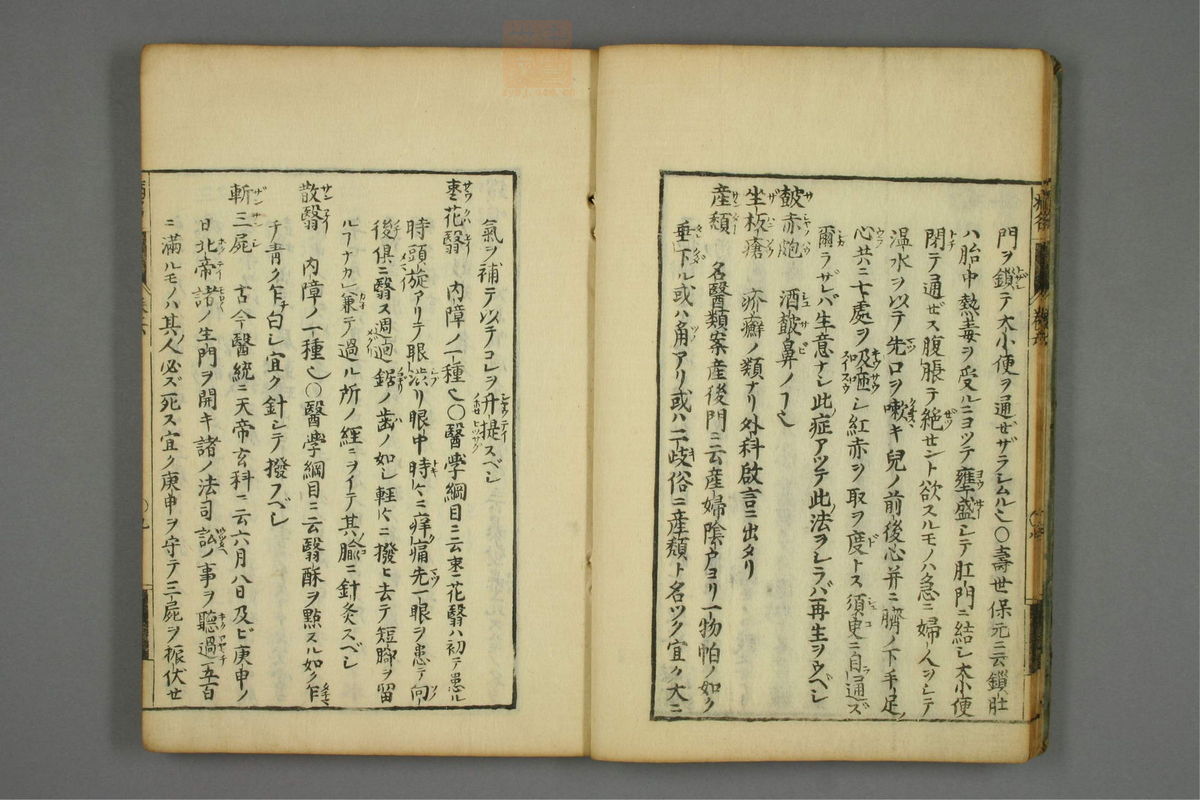 門ヲ鎖テ大小便ヲ通ゼザラシムル也〇壽世保元ニ云鎖肚
ハ胎中熱毒ヲ受ルニヨツテ壅盛シテ肛門ニ結シ大小便
閉テ通ゼス腹脹テ絶セント欲スルモノハ急ニ婦人ヲシテ
温水ヲ以テ先口ヲ嗽キ兒ノ前後心并ニ臍ノ下手足
心共ニ七處ヲ吸咂シ紅赤ヲ取ヲ度トス須臾ニ自通ズ
爾ラザレバ生意ナシ此症アツテ此法ヲシラバ再生ヲウベシ
皶赤炮 酒皶鼻ノヿ也
坐板瘡 疥癬ノ類ナリ外科啟言ニ出タリ
産㿗 名醫類案産後門ニ云産婦陰戸ヨリ一物帕ノ如ク
垂下ル或ハ角アリ或ハ二歧俗ニ産㿗ト名ツク宜ク大ニ
氣ヲ補テ以テコレヲ升提スベシ
棗花翳 内障ノ一種也〇醫學綱目ニ云棗花翳ハ初テ患ル
時頭旋アリテ眼澁リ眼中時々ニ痒痛先一眼ヲ患テ向
後俱ニ翳ス周迴鋸ノ歯ノ如シ軽々ニ撥ヒ去テ短脚ヲ留
ルフナカレ兼テ過ル所ノ經ニヲイテ其腧ニ針灸スベシ
散翳 内障ノ一種也〇醫學綱目ニ云翳酥ヲ點スル如ク乍
チ青ク乍チ白シ宜ク針シテ撥フベシ
斬三屍 古今醫統ニ天帝玄科ニ云六月八日及ビ庚申ノ
日北帝諸ノ生門ヲ開キ諸ノ法司訟ノ事ヲ聽過五百
ニ滿ルモノハ其人必ズ死ス宜ク庚申ヲ守テ三屍ヲ振伏せ